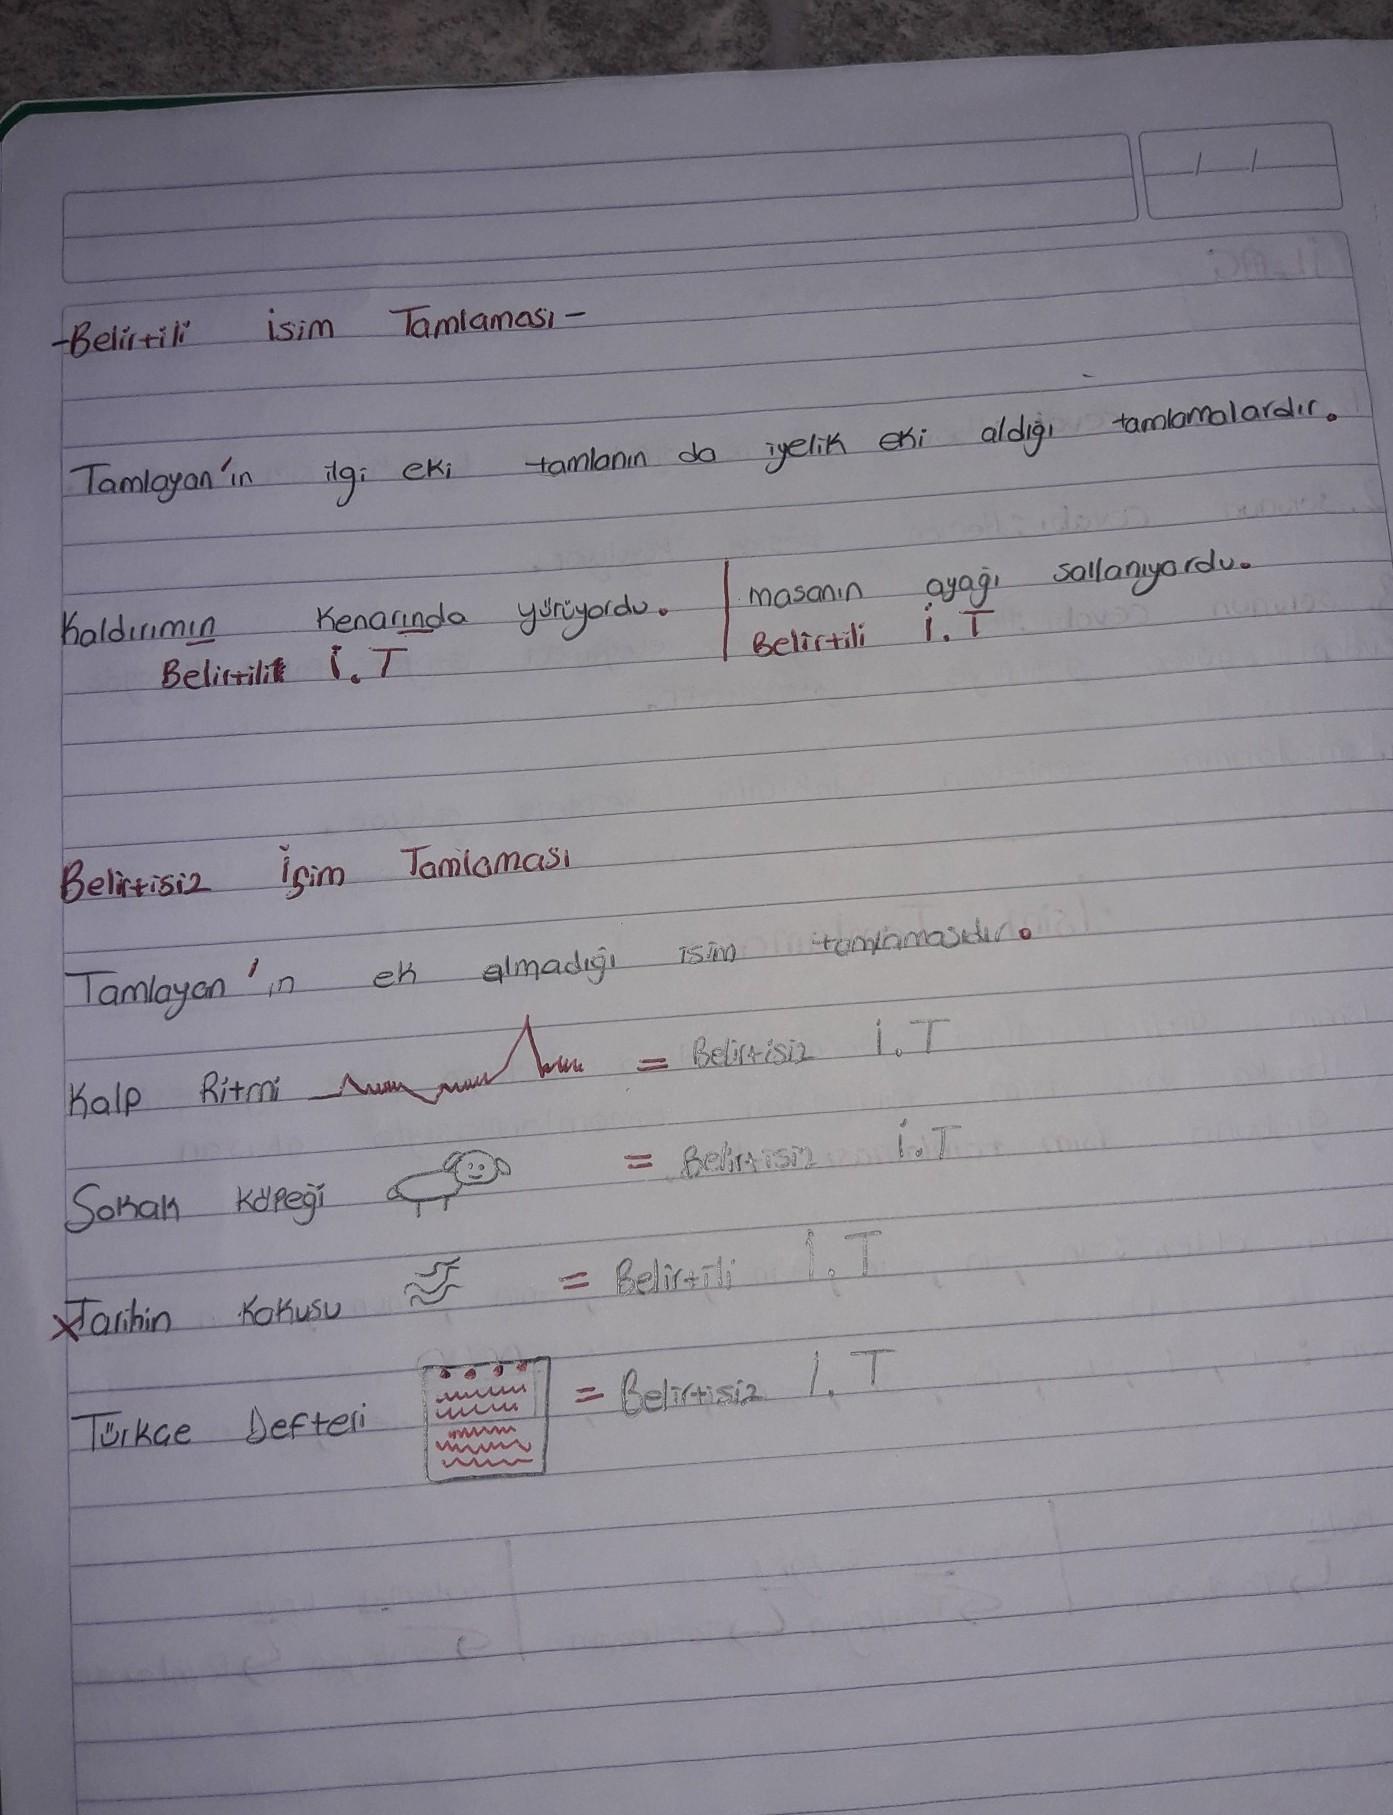 -Belirtili isim Tamlaması-
Tamlayan'ın ilgi eki tamlanın da iyelik eki aldığı tamlamalardır.
Kaldırımın Kenarında yürüyordu. | masanın ayağı sallanıyordu.
Belirtili İ.T | Belirtili İ.T
Belirtisiz İsim Tamlaması
Tamlayan'ın ek almadığı isim tamlamasıdır.
Kalp Ritmi = Belirtisiz İ.T
Sokak Köpeği = Belirtisiz İ.T
xTarihin Kokusu = Belirtili İ.T
Türkçe Defteri = Belirtisiz İ.T